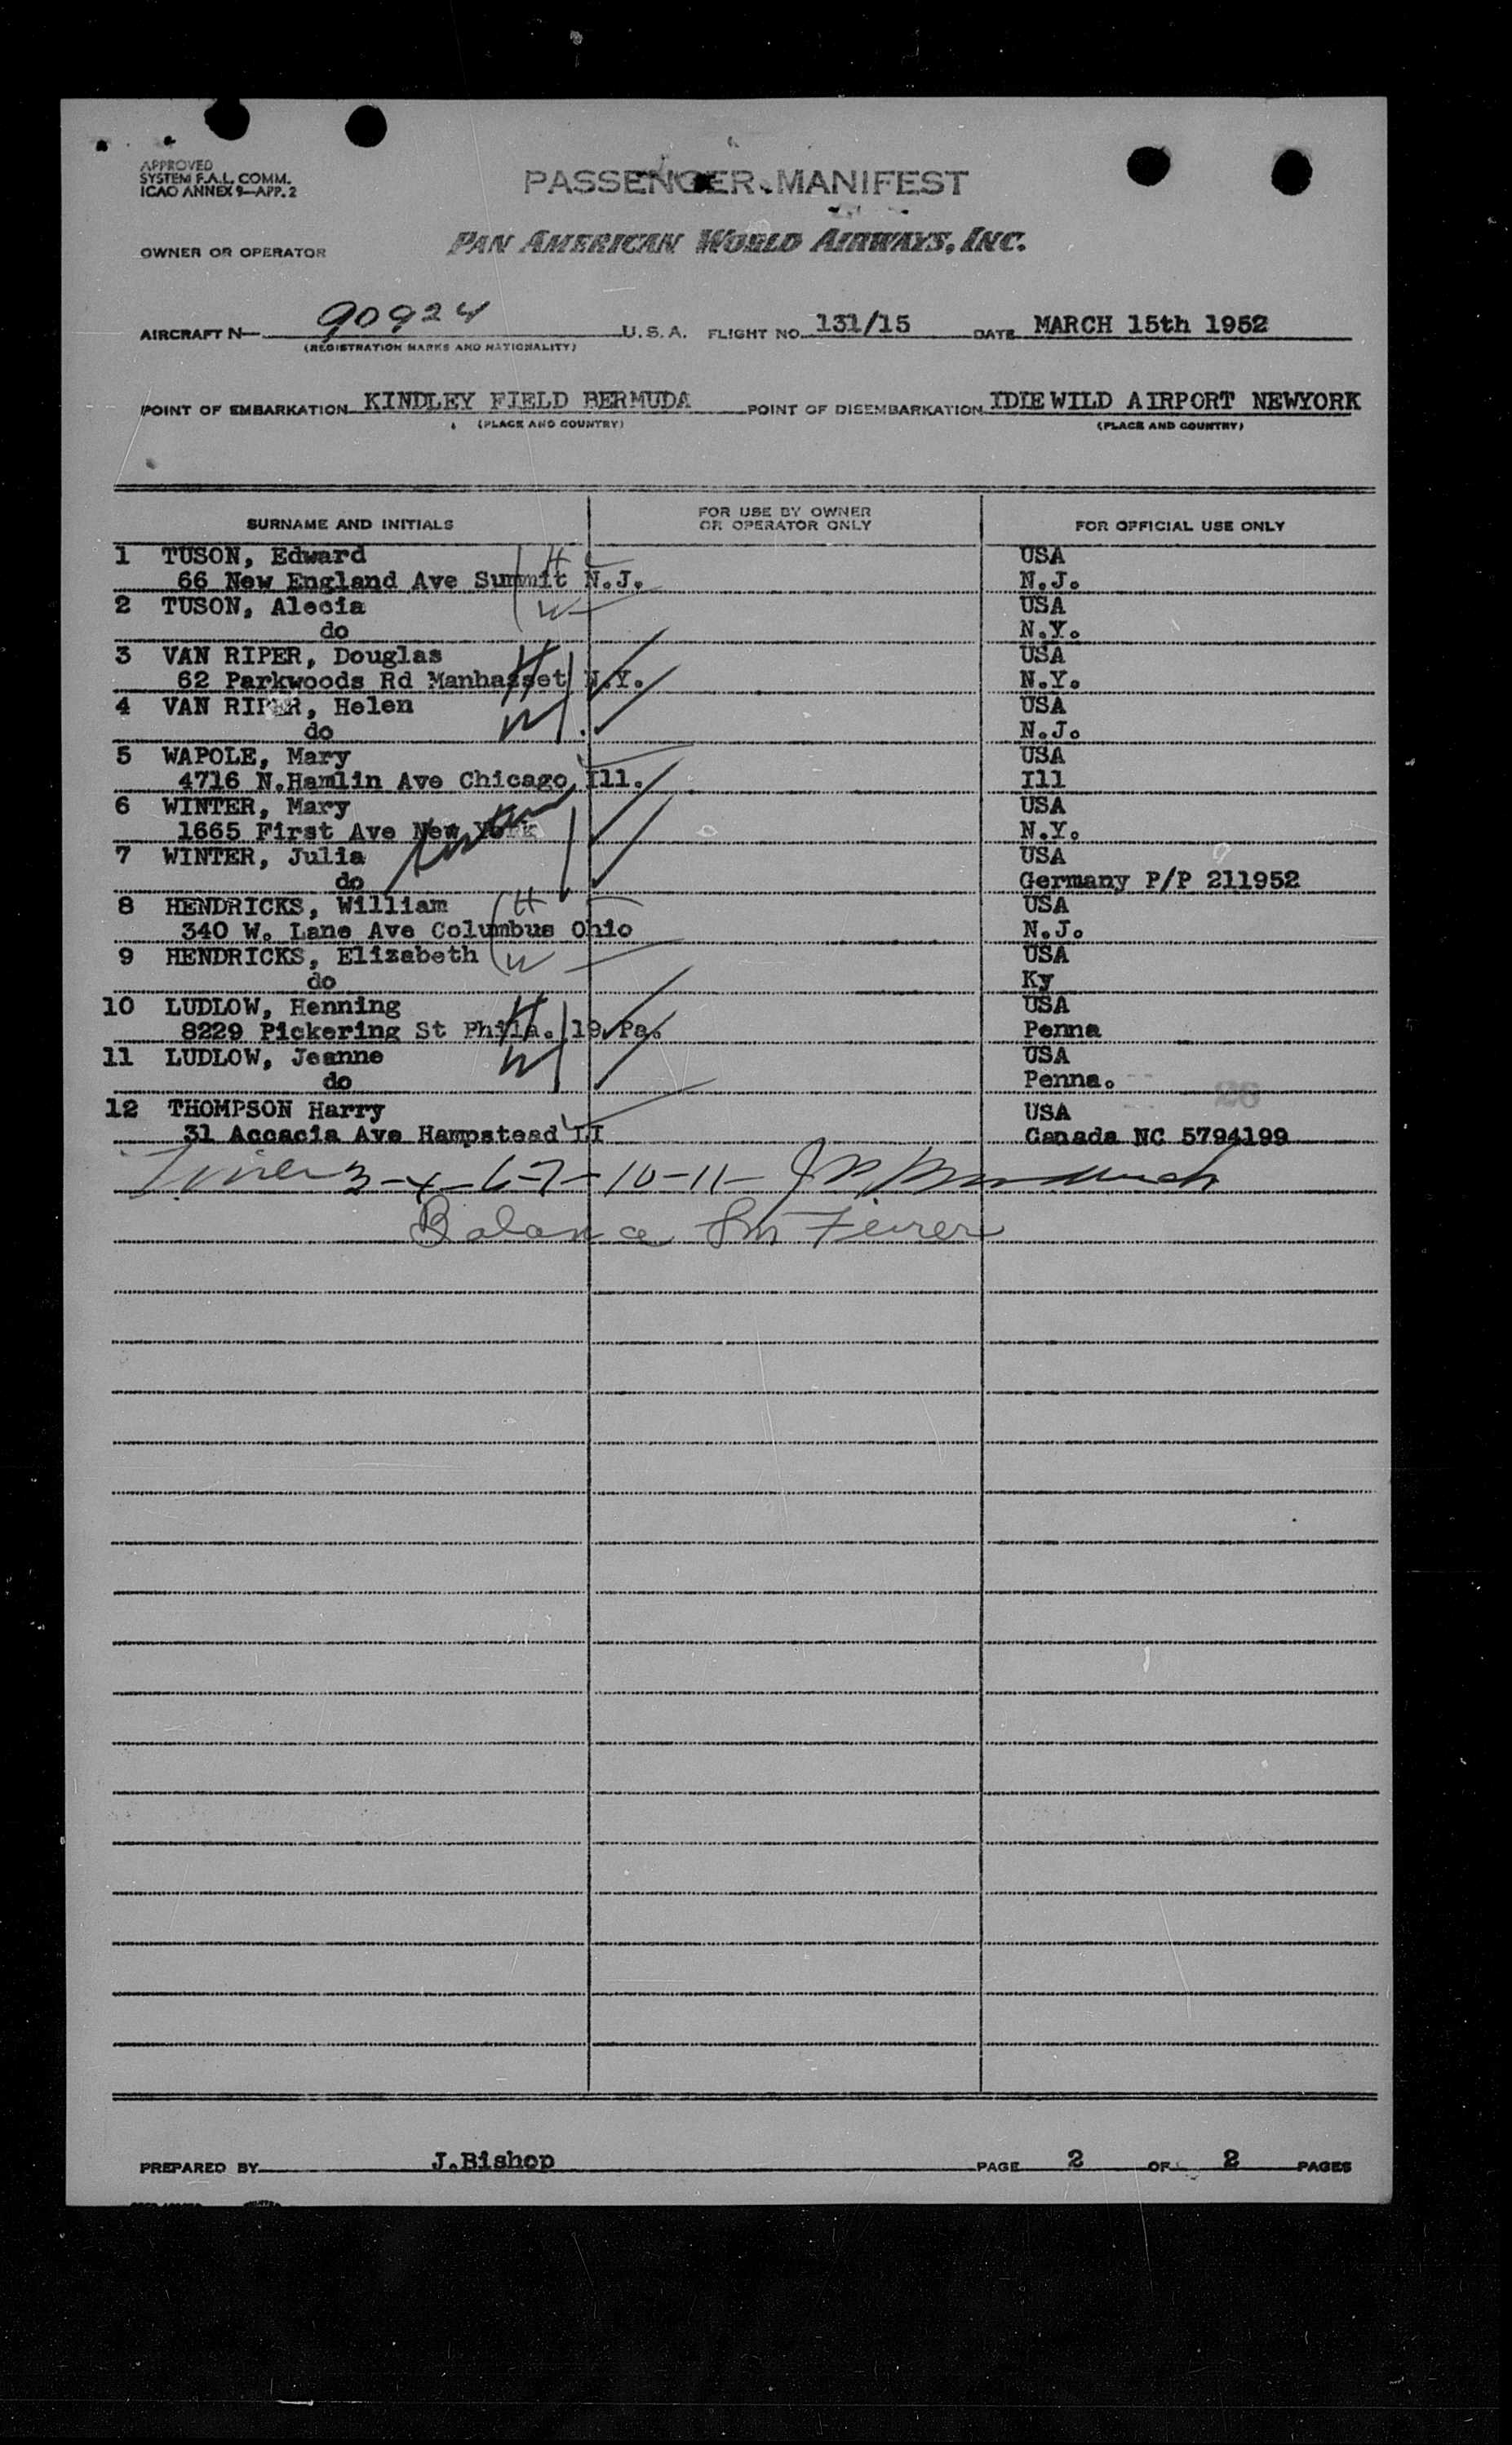 APPROVED
SYSTEM F.A.L. COMM.
ICAO ANNEX 9—APP. 2
PASSENGER MANIFEST
OWNER OR OPERATOR PAN AMERICAN WORLD AIRWAYS, INC.
AIRCRAFT N— 90924 U.S.A. FLIGHT NO. 131/15 DATE MARCH 15th 1952
(REGISTRATION MARKS AND NATIONALITY)
POINT OF EMBARKATION KINDLEY FIELD BERMUDA POINT OF DISEMBARKATION IDIEWILD AIRPORT NEWYORK
(PLACE AND COUNTRY) (PLACE AND COUNTRY)
SURNAME AND INITIALS FOR USE BY OWNER OR OPERATOR ONLY FOR OFFICIAL USE ONLY
1 TUSON, Edward H USA
66 New England Ave Summit N.J. N.J.
2 TUSON, Alecia W USA
do N.Y.
3 VAN RIPER, Douglas H USA
62 Parkwoods Rd Manhasset N.Y. N.Y.
4 VAN RIPER, Helen W USA
do N.J.
5 WAPOLE, Mary USA
4716 N.Hamlin Ave Chicago Ill. Ill
6 WINTER, Mary USA
1665 First Ave New York N.Y.
7 WINTER, Julia USA
do Germany P/P 211952
8 HENDRICKS, William H USA
340 W. Lane Ave Columbus Ohio N.J.
9 HENDRICKS, Elizabeth W USA
do Ky
10 LUDLOW, Henning H USA
8229 Pickering St Phila. 19. Pa. Penna
11 LUDLOW, Jeanne W USA
do Penna.
12 THOMPSON Harry USA
31 Accacia Ave Hampstead LI Canada NC 5794199
3-4-6-7-10-11-
Balance
PREPARED BY J.Bishop PAGE 2 OF 2 PAGES